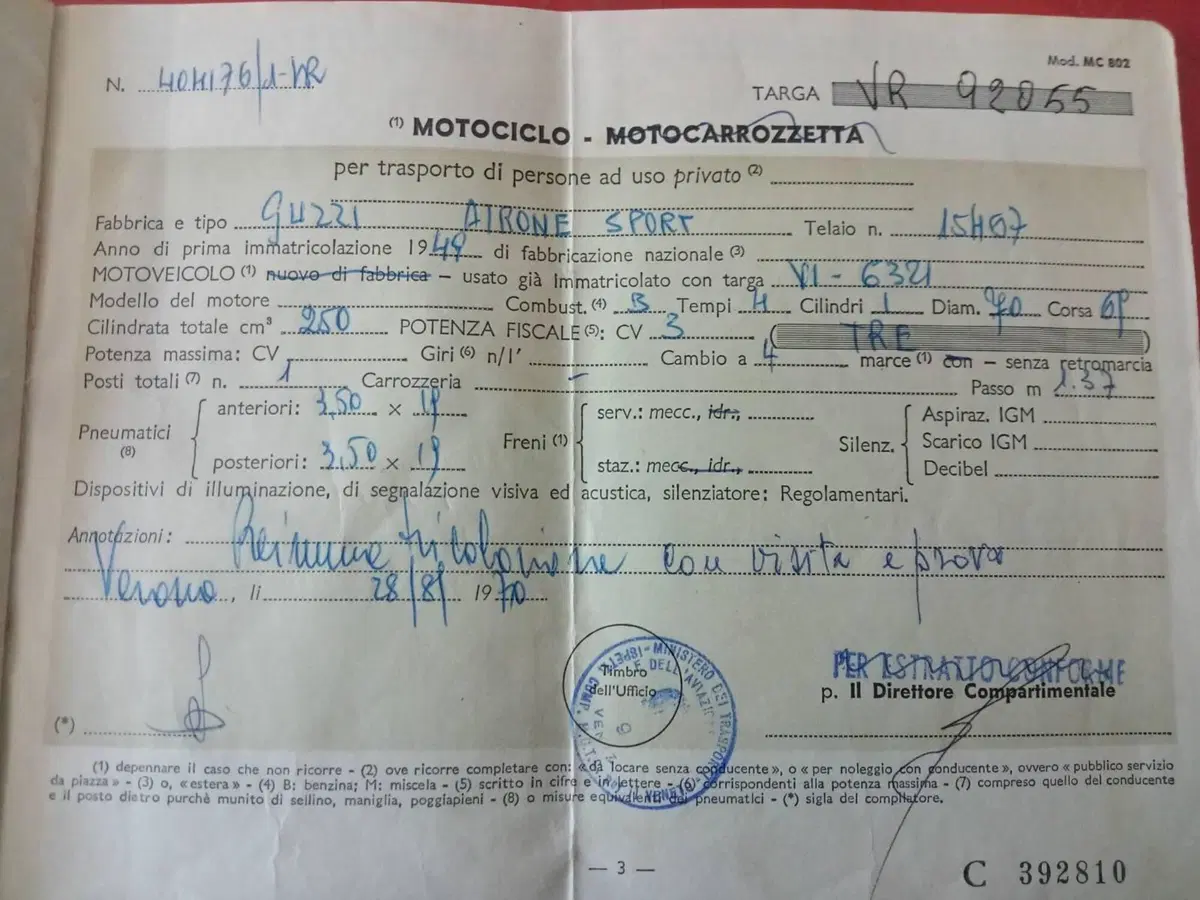 Mod. MC 802
N. 404176/1-VR
TARGA VR 92055
(1) MOTOCICLO - MOTOCARROZZETTA
per trasporto di persone ad uso privato (2)
Fabbrica e tipo GUZZI AIRONE SPORT Telaio n. 15407
Anno di prima immatricolazione 1949 di fabbricazione nazionale (3)
MOTOVEICOLO (1) nuovo di fabbrica – usato già Immatricolato con targa VI - 6321
Modello del motore Combust. (4) B Tempi 4 Cilindri 1 Diam. 70 Corsa
Cilindrata totale cm³ 250 POTENZA FISCALE (5): CV 3 (TRE)
Potenza massima: CV Giri (6) n/1' Cambio a 4 marce (1) con – senza retromarcia
Posti totali (7) n. 1 Carrozzeria – Passo m 1.37
Pneumatici (8) anteriori: 3,50 × 19
posteriori: 3,50 × 19
Freni (1) serv.: mecc., idr.,
staz.: mecc., idr.,
Silenz. Aspiraz. IGM
Scarico IGM
Decibel
Dispositivi di illuminazione, di segnalazione visiva ed acustica, silenziatore: Regolamentari.
Annotazioni: con visita e prova
Verona, lì 28/8/ 1970
Timbro
dell'Ufficio
MINISTERO DEI TRASPORTI E DELL'AVIAZIONE
PER ESTRATTO CONFORME
p. Il Direttore Compartimentale
(*)
(1) depennare il caso che non ricorre - (2) ove ricorre completare con: «da locare senza conducente», o «per noleggio con conducente», ovvero «pubblico servizio
da piazza» - (3) o, «estera» - (4) B: benzina; M: miscela - (5) scritto in cifre e in lettere - (6) corrispondenti alla potenza massima - (7) compreso quello del conducente
e il posto dietro purchè munito di sellino, maniglia, poggiapieni - (8) o misure equivalenti dei pneumatici - (*) sigla del compilatore.
— 3 —
C 392810